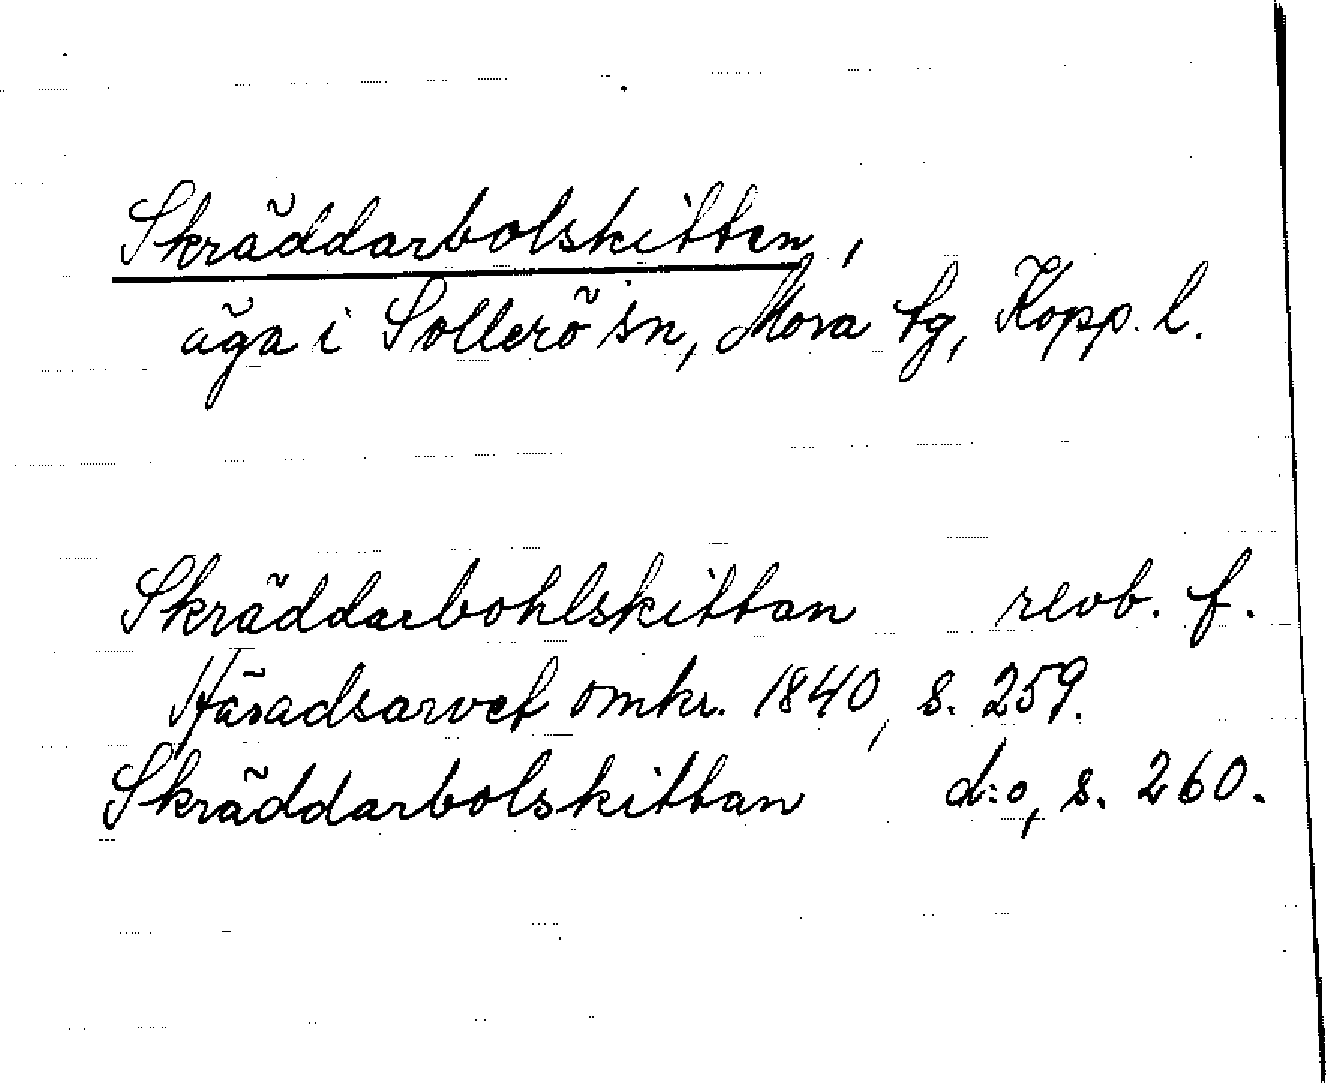 Skräddarbolskitten,
äga i Sollerö sn, Mora tg, Kopp. l.
Skräddarbohlskittan revb. f.
Häradsarvet omkr. 1840, s. 259.
Skräddarbolskittan d:o, s. 260.